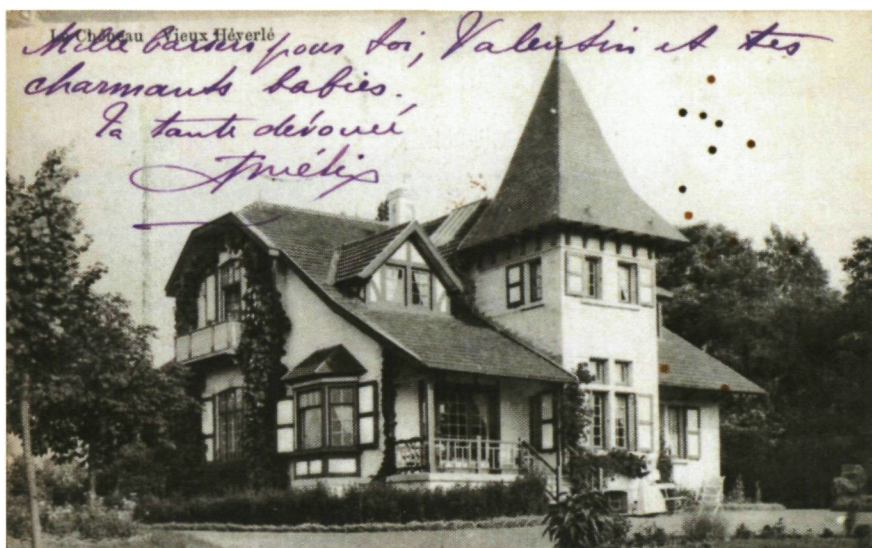 Vieux Héverlé
Mille baisers pour toi, Valentin et tes
charmants babies.
Ta tante dévouée
Amélie